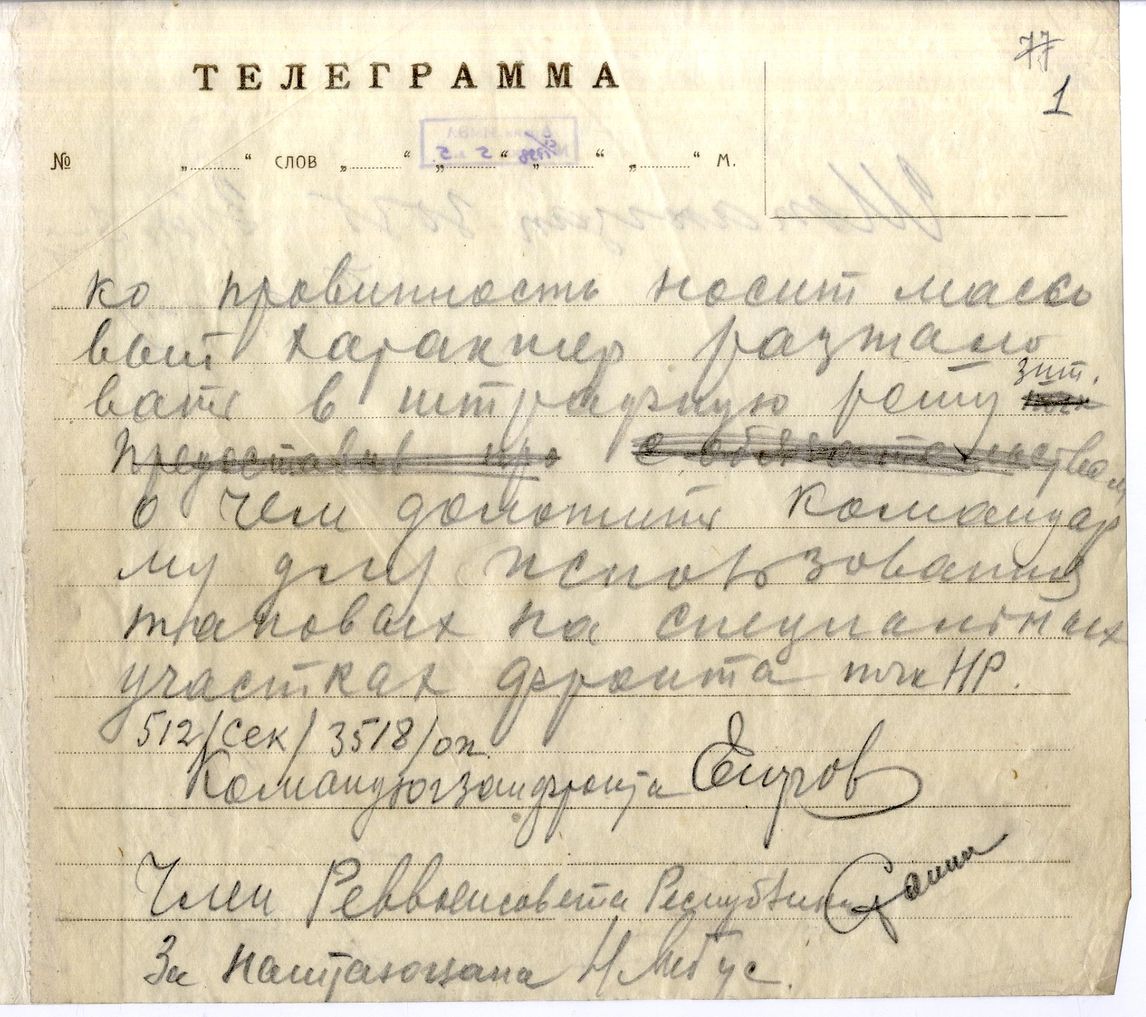 77
1
ТЕЛЕГРАММА
№ „ “ слов „ “ „ “ „ “ „ “ м.
ко провинность носит массо
вый характер разжало
вать в штрафную роту зпт.
Предоставив про с обязательством
о чем доложить командар
му для использования
таковых на специальных
участках фронта тчк НР.
512/сек/3518/оп.
Командюгзапфронта Егоров
Член Реввоенсовета Республики Сталин
За наштаюгзапа